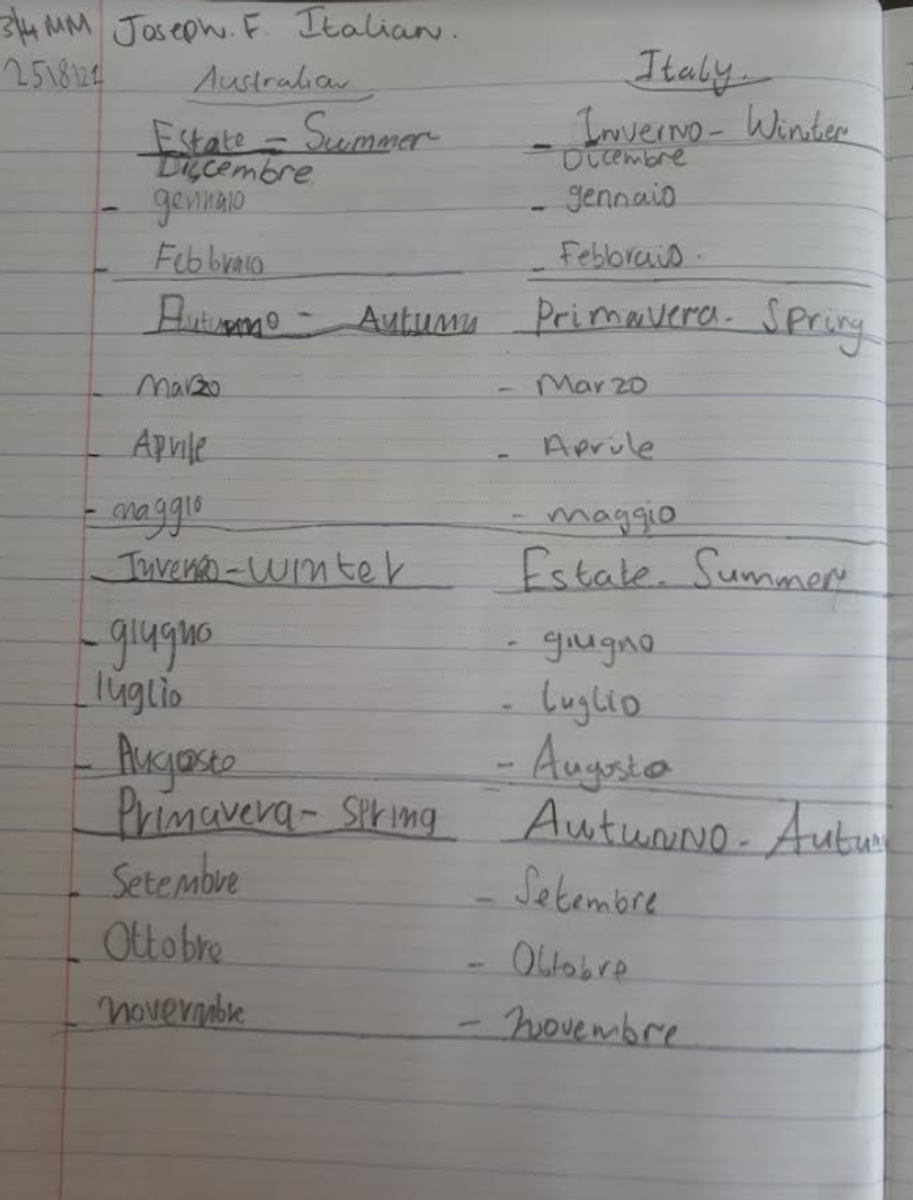 3/4 MM Joseph. F. Italian.
25/8/21 Australian Italy.
Estate - Summer - Inverno - Winter
Diccembre Dicembre
- gennaio - gennaio
- Febbraio - Febbraio.
Autunno - Autumn Primavera - Spring
- Marzo - Marzo
- Aprile - Aprile
- maggio - maggio
Inverno - winter Estate - Summer
- giugno - giugno
- luglio - luglio
- Augosto - Augosto
Primavera - Spring Autunno - Autum
- Setembre - Setembre
- Ottobre - Ottobre
- novembre - novembre